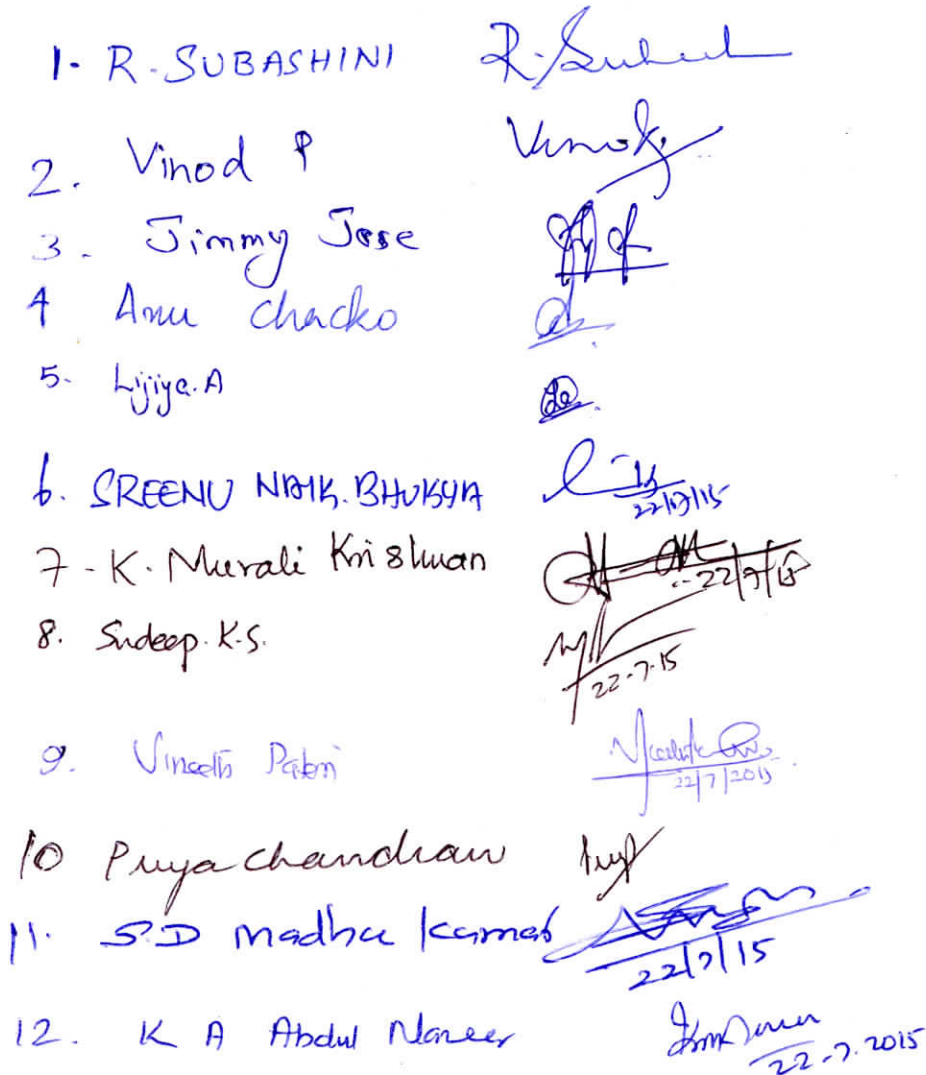 1. R. SUBASHINI R. Subash
2. Vinod P Vinod
3. Jimmy Jose
4 Anu Chacko
5. Lijiya.A
6. SREENU NAIK.BHUKYA 22/07/15
7. K. Murali Krishnan 22/7/15
8. Sudeep.K.S. 22-7-15
9. Vineeth Paleri 22/7/2015
10 Priya chandran
11. S.D Madhu kumar 22/7/15
12. K A Abdul Nazeer 22.7.2015